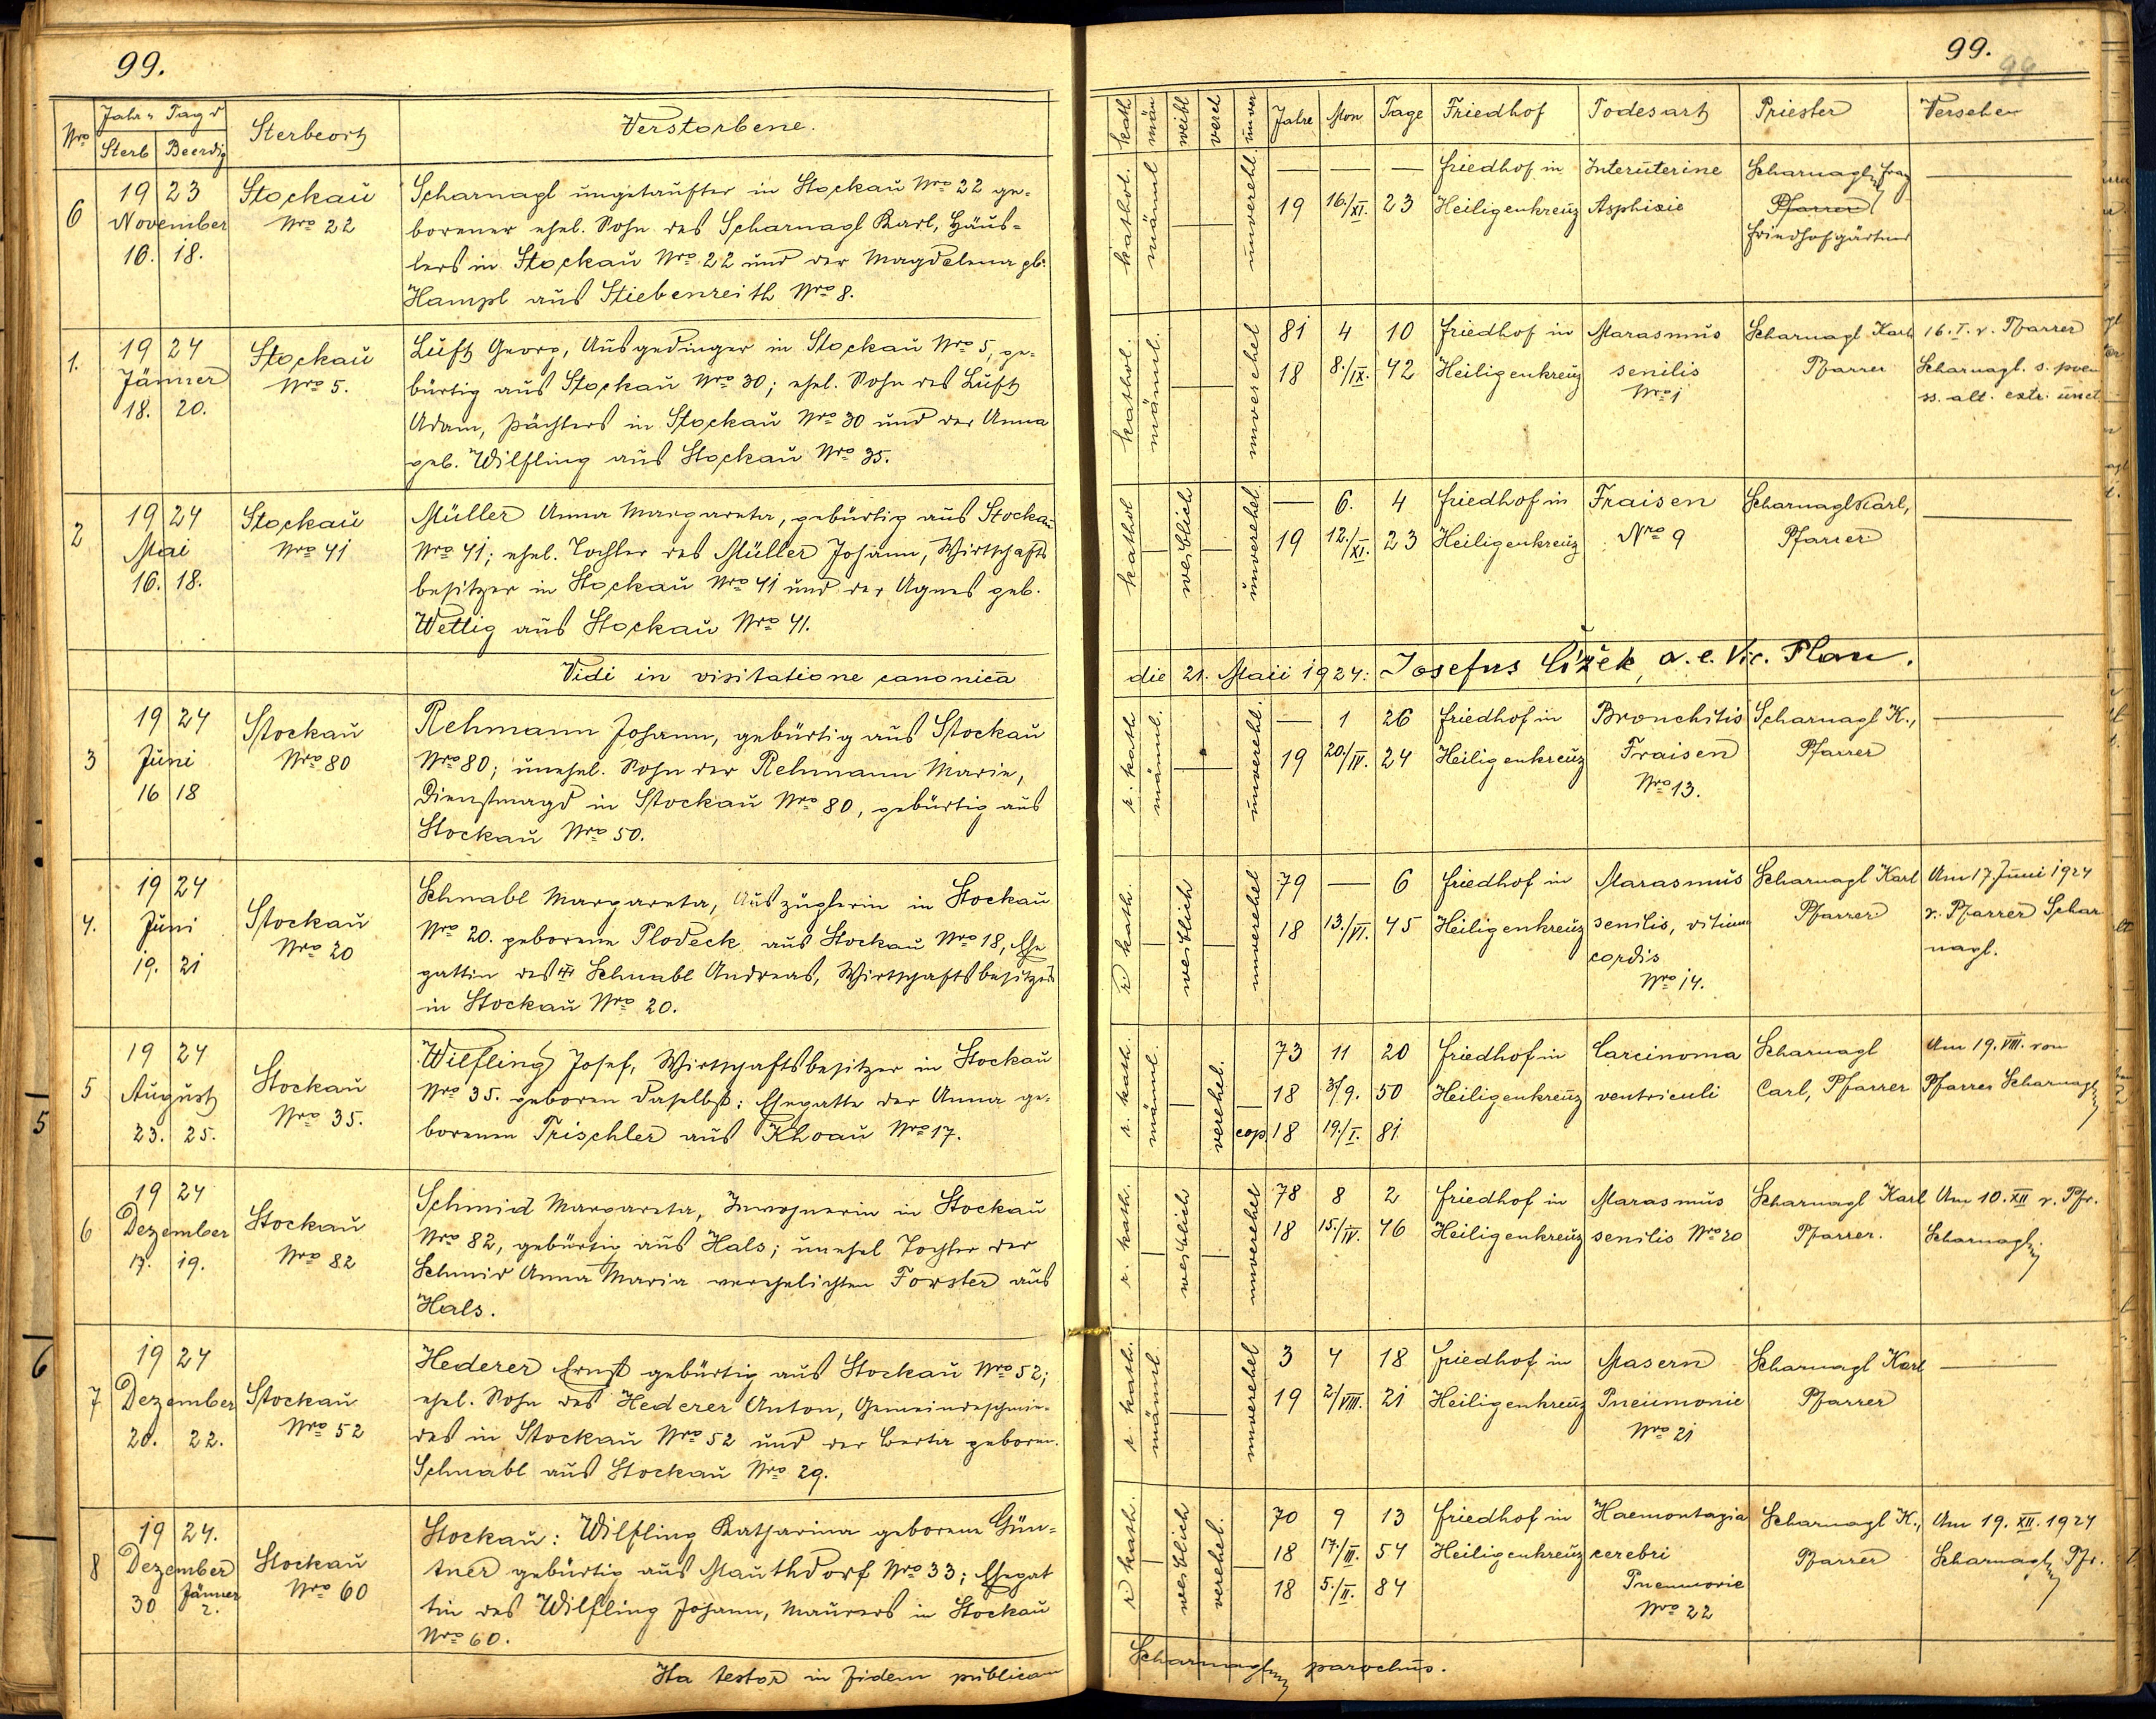 99.
Nro Jahr u. Tag d Sterbeort Verstorbene.
Sterb Beerdig
6 19 23 Stockau Scharnagl ungetaufter in Stockau Nro 22 ge-
November Nro 22 borener ehel. Sohn des Scharnagl Karl, Häus-
16. 18. lers in Stockau Nro 22 und der Magdalena gb.
Hampl aus Stiebenreith Nro 8.
1. 19 24 Stockau Luft Georg, Ausgedinger in Stockau Nro 5, ge-
Jänner Nro 5. bürtig aus Stockau Nro 30; ehel. Sohn des Luft
18. 20. Adam, Pächters in Stockau Nro 30 und der Anna
geb. Wilfling aus Stockau Nro 35.
2 19 24 Stockau Müller Anna Margareta, gebürtig aus Stockau
Mai Nro 41 Nro 41; ehel. Tochter des Müller Johann, Wirtschafts
16. 18. besitzer in Stockau Nro 41 und der Agnes geb.
Wettig aus Stockau Nro 41.
Vidi in visitatione canonica
3 19 24 Stockau Rehmann Johann, gebürtig aus Stockau
Juni Nro 80 Nro 80; unehel. Sohn der Rehmann Marie,
16 18 Dienstmagd in Stockau Nro 80, gebürtig aus
Stockau Nro 50.
4. 19 24 Stockau Schnabl Margareta, Auszüglerin in Stockau
Juni Nro 20 Nro 20. geborene Plodeck aus Stockau Nro 18, Ehe
19. 21 gattin des Schnabl Andreas, Wirtschaftsbesitzers
in Stockau Nro 20.
5 19 24 Stockau Wilfling Josef, Wirtschaftsbesitzer in Stockau
August Nro 35. Nro 35. geboren daselbst; Ehegatte der Anna ge-
23. 25. borenen Trischler aus Khoau Nro 17.
6 19 24 Stockau Schmid Margareta, Inwohnerin in Stockau
Dezember Nro 82 Nro 82, gebürtig aus Hals; unehel Tochter der
17. 19. Schmid Anna Maria verehelichten Forster aus
Hals.
7 19 24 Stockau Hederer Ernst gebürtig aus Stockau Nro 52;
Dezember Nro 52 ehel. Sohn des Hederer Anton, Gemeindeschmie-
20. 22. des in Stockau Nro 52 und der Berta geboren.
Schnabl aus Stockau Nro 29.
8 19 24. Stockau Stockau: Wilfling Katharina geborene Gün-
Dezember Nro 60 tner gebürtig aus Mauthdorf Nro 33; Ehegat
30 Jänner 2. tin des Wilfling Johann, Maurers in Stockau
Nro 60.
Ita testor in fidem publicam
99.
99
kath män weibl verel unver Jahre Mon Tage Friedhof Todesart Priester Versehen
kathol. männl unverehl. — — — Friedhof in Interuterine Scharnagl —
19 16./XI. 23 Heiligenkreuz Asphixie Pfarrer
Friedhofgärtner
kathol. männl. unverehel 81 4 10 Friedhof in Marasmus Scharnagl Karl 16. I. v. Pfarrer
18 8./IX. 42 Heiligenkreuz senilis Pfarrer Scharnagl. s. poen
Nro 1 ss. alt. extr. unct
kathol weiblich unverehel. — 6. 4 Friedhof in Fraisen Scharnagl Karl, —
19 12./XI. 23 Heiligenkreuz Nro 9 Pfarrer
die 21. Maii 1924: Josefus Čížek, a. e. Vic. Plan.
r. kath männl. unverehl. — 1 26 Friedhof in Bronchitis Scharnagl K., —
19 20./IV. 24 Heiligenkreuz Fraisen Pfarrer
Nro 13.
r kath. weiblich unverehel 79 — 6 Friedhof in Marasmus Scharnagl Karl Am 17 Juni 1924
18 13./VI. 45 Heiligenkreuz senilis, vitium Pfarrer v. Pfarrer Schar
cordis nagl.
Nro 14.
r. kath. männl. verehel. 73 11 20 Friedhof in Carcinoma Scharnagl Am 19. VIII. von
18 3/9. 50 Heiligenkreuz ventriculi Carl, Pfarrer Pfarrer Scharnagl
cop 18 19./I. 81
r. kath. weiblich unverehel 78 8 2 Friedhof in Marasmus Scharnagl Karl Am 10. XII v. Pfr.
18 15./IV. 46 Heiligenkreuz senilis Nro 20 Pfarrer. Scharnagl
r. kath. männl unverehel 3 4 18 Friedhof in Masern Scharnagl Karl —
19 2/VIII. 21 Heiligenkreuz Pneumonie Pfarrer
Nro 21
r kath. weiblich verehel. 70 9 13 Friedhof in Haemontagia Scharnagl K., Am 19. XII. 1924
18 17./III. 54 Heiligenkreuz cerebri Pfarrer Scharnagl Pfr.
18 5./II. 84 Pneumonie
Nro 22
Scharnagl parochus.